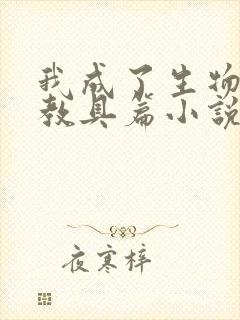 我成了生物
教具篇小說
夜寒梓